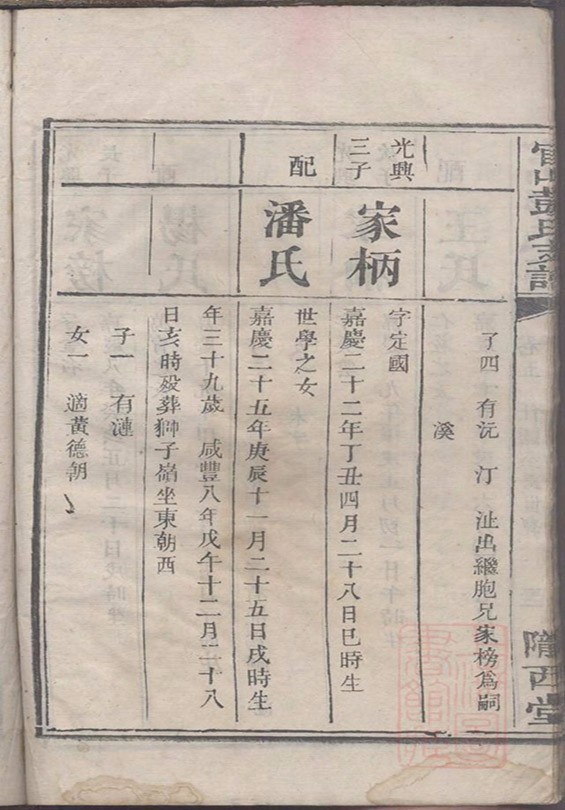 隴西堂
子四 有沅 汀 沚出繼胞兄家榜爲嗣
溪
光興
三子
家柄
字定國
嘉慶二十二年丁丑四月二十八日巳時生
配
潘氏
世學之女
嘉慶二十五年庚辰十一月二十五日戌時生
年三十九歲 咸豐八年戊午十二月二十八
日亥時歿葬獅子嶺坐東朝西
子一 有漣
女一 適黃德朝